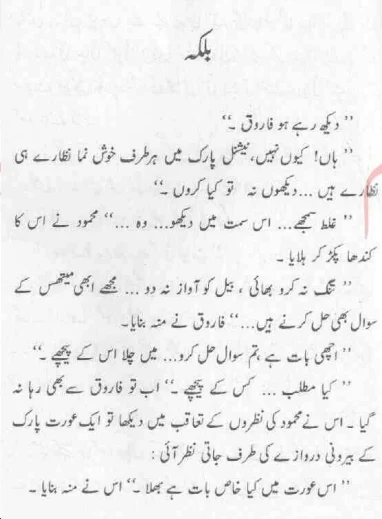 بلکہ
’’ دیکھ رہے ہو فاروق ۔‘‘
’’ ہاں! کیوں نہیں، نیشنل پارک میں ہر طرف خوش نما نظارے ہی
نظارے ہیں ... دیکھوں نہ تو کیا کروں ۔‘‘
’’ غلط سمجھے... اس سمت میں دیکھو... وہ ...‘‘ محمود نے اس کا
کندھا پکڑ کر ہلایا ۔
’’ تنگ نہ کرو بھائی ، بیل کو آواز نہ دو ... مجھے ابھی میتھس کے
سوال بھی حل کرنے ہیں...‘‘ فاروق نے منہ بنایا۔
’’ اچھی بات ہے ،تم سوال حل کرو... میں چلا اس کے پیچھے ۔‘‘
’’ کیا مطلب ... کس کے پیچھے ۔‘‘ اب تو فاروق سے بھی رہا نہ
گیا ۔ اس نے محمود کی نظروں کے تعاقب میں دیکھا تو ایک عورت پارک
کے بیرونی دروازے کی طرف جاتی نظر آئی :
’’ اس عورت میں کیا خاص بات ہے بھلا ۔‘‘ اس نے منہ بنایا ۔